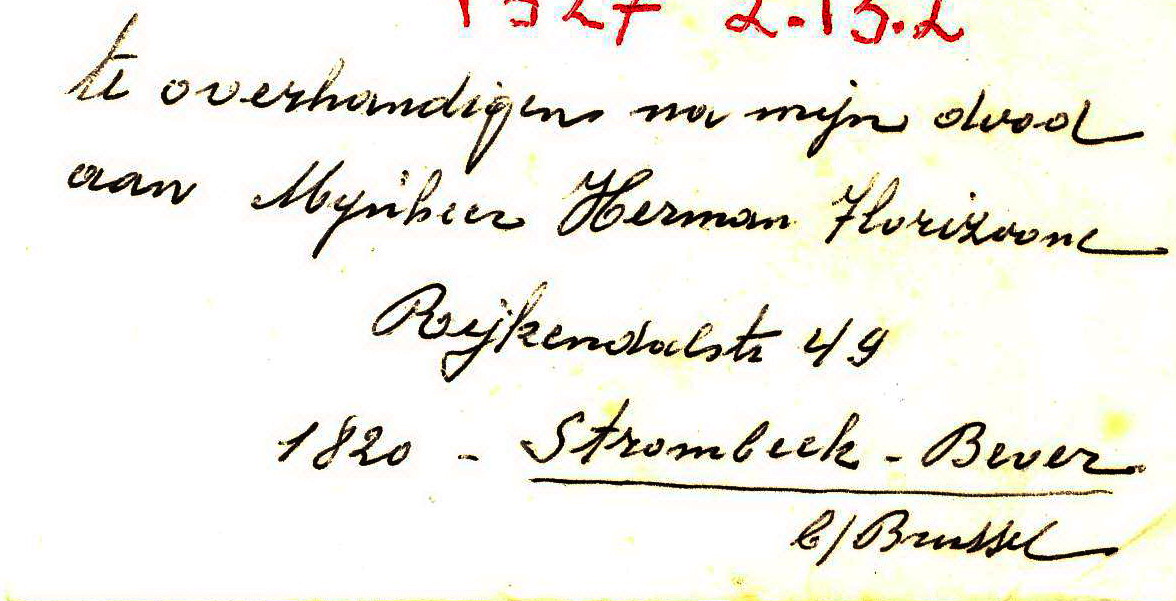 1327 2.13.2
te overhandigen na mijn dood
aan Mynheer Herman Florizoone
Rijkendalstr 49
1820 - Strombeek - Bever
b/Brussel